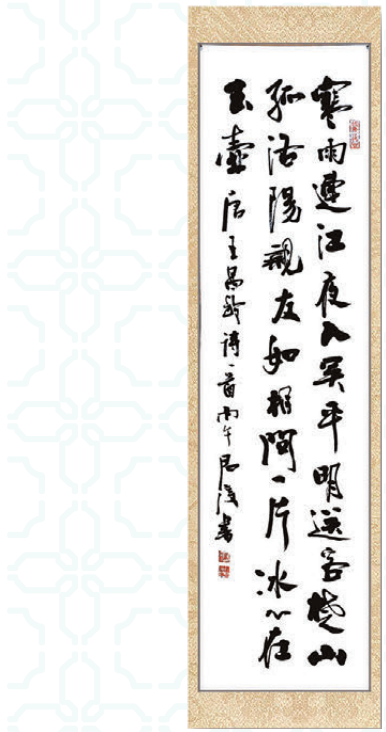 寒雨連江夜入吴平明送客楚山
孤洛陽親友如相問一片冰心在
玉壶唐王昌龄诗一首丙午
书